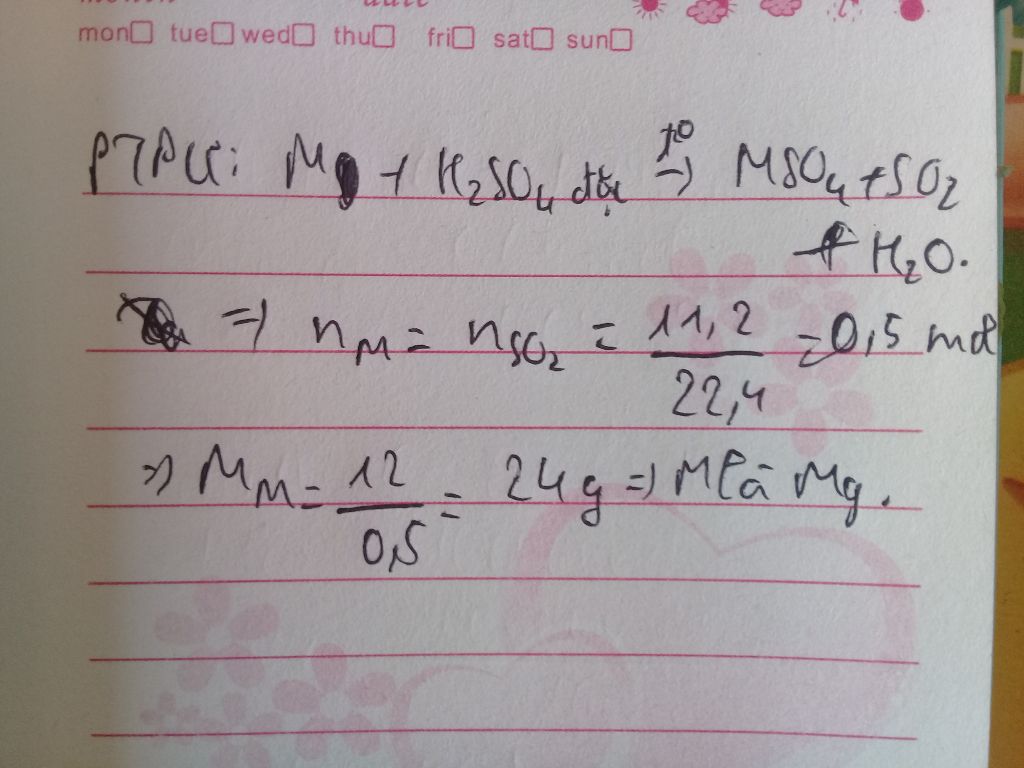 mon☐ tue☐ wed☐ thu☐ fri☐ sat☐ sun☐
PTPU: M + H₂SO₄ đặc t° → MSO₄ + SO₂
+ H₂O.
=> n_M = n_SO₂ = 11,2/22,4 = 0,5 mol
=> M_M = 12/0,5 = 24g => M là Mg.